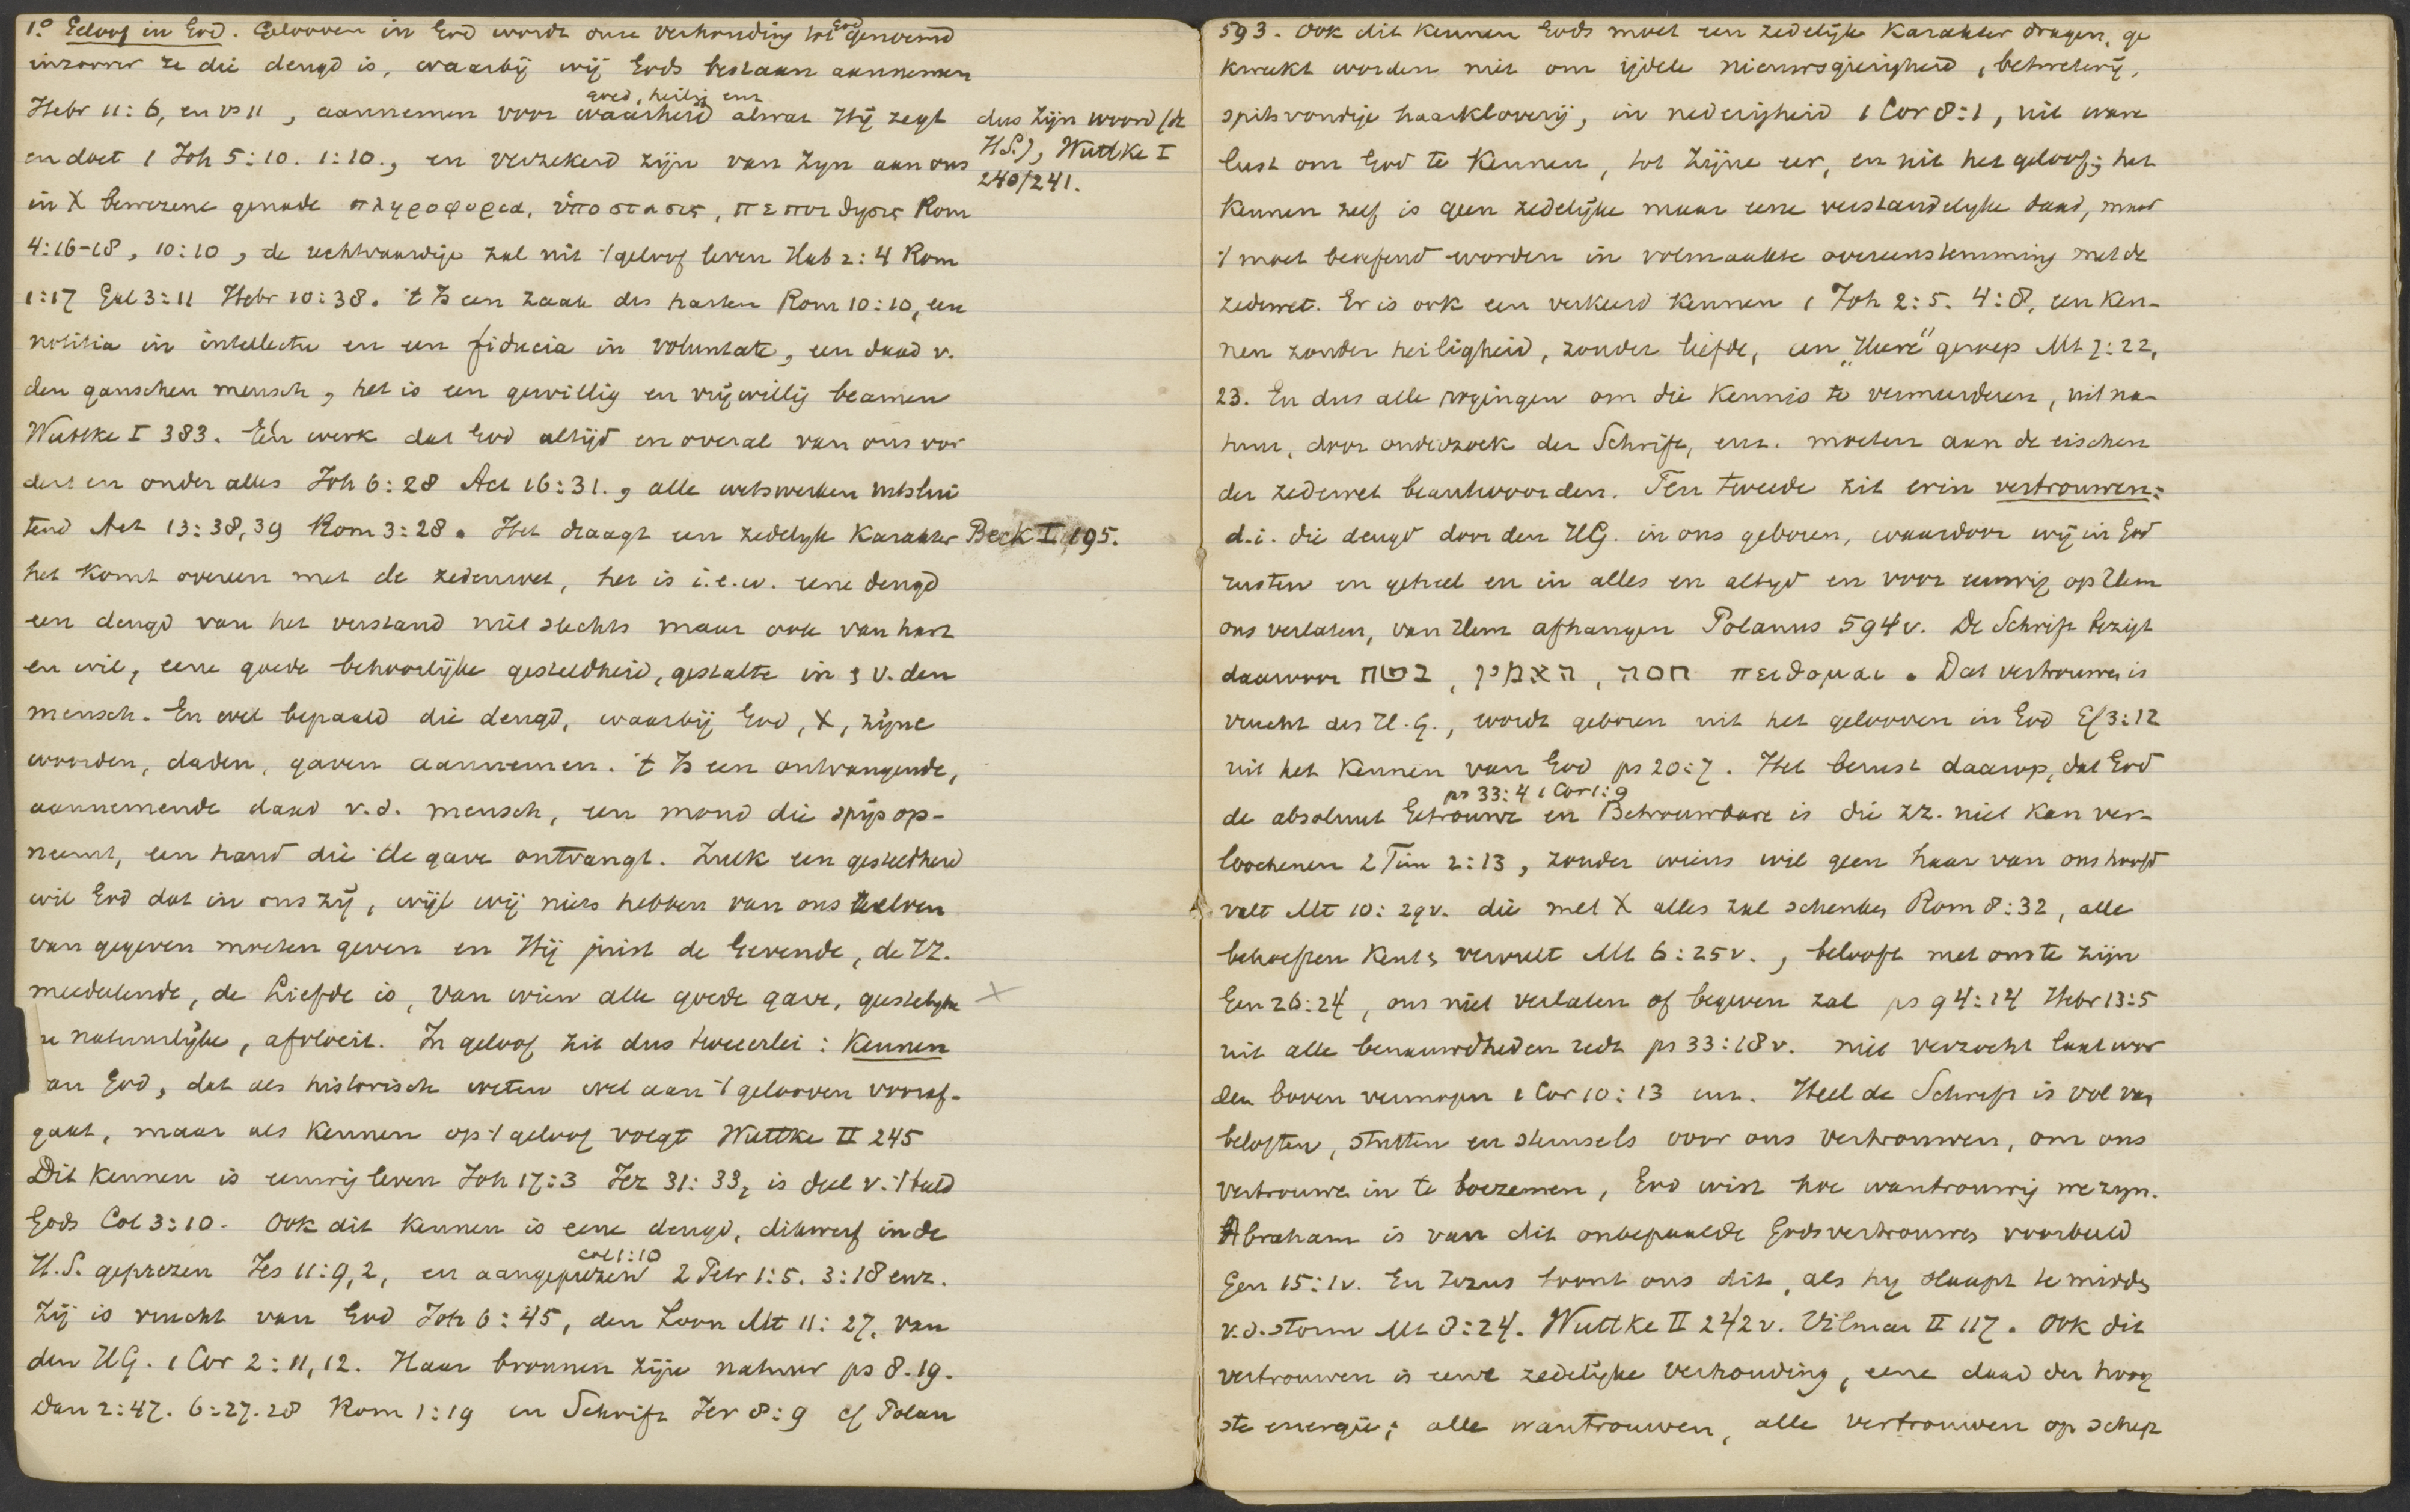 1.° Geloof in God. Gelooven in God wordt onze verhouding tot God genoemd
inzoover ze die deugd is, waarbij wij Gods bestaan aannemen
Hebr 11:6, en vs 11, aannemen voor waarheid goed, heilig enz alwat Hij zegt dus Zijn woord (de
en doet 1 Joh 5:10. 1:10., en verzekerd zijn van Zijn aan ons H.S.), Wuttke I
in X bewezene genade πληροφορια, ὑποστασις, πεποιθησις Rom 240/241.
4:16-18, 10:10, de rechtvaardige zal uit 't geloof leven Hab 2:4 Rom
1:17 Gal 3:11 Hebr 10:38. 't Is een zaak des harten Rom 10:10, een
notitia in intellectu en een fiducia in voluntate, een daad v.
den ganschen mensch, het is een gewillig en vrijwillig beamen
Wuttke I 383. Eén werk dat God altijd en overal van ons vor
dert en onder alles Joh 6:28 Act 16:31., alle wetswerken uitslui
tend Act 13:38,39 Rom 3:28. Het draagt een zedelijk karakter Beck II, 195.
het komt overeen met de zedenwet, het is i.e.w. eene deugd
een deugd van het verstand niet slechts maar ook van hart
en wil, eene goede behoorlijke gesteldheid, gestalte in & v. den
mensch. En wel bepaald die deugd, waarbij God, X, zijne
woorden, daden, gaven aannemen. 't Is een ontvangende,
aannemende daad v.d. mensch, een mond die spijs op-
neemt, een hand die de gave ontvangt. Zulk een gesteldheid
wil God dat in ons zij, wijl wij niets hebben van ons zelven
van gegeven moeten geven en Hij juist de Gevende, de ZZ.
meedeelende, de Liefde is, van wien alle goede gave, geestelijke X
en natuurlijke, afvloeit. In geloof zit dus tweeerlei: Kennen
van God, dat als historisch weten wel aan 't gelooven vooraf-
gaat, maar als kennen op 't geloof volgt Wuttke II 245
Dit kennen is eeuwig leven Joh 17:3 Jer 31:33, is deel v. 't beeld
Gods Col 3:10. Ook dit kennen is eene deugd, dikwerf in de
H.S. geprezen Jes 11:9,2, en aangeprezen Col 1:10 2 Petr 1:5. 3:18 enz.
Zij is vrucht van God Joh 6:45, den Zoon Mt 11:27, van
den HG. 1 Cor 2:11,12. Haar bronnen zijn natuur ps 8.19.
Dan 2:47. 6:27.28 Rom 1:19 en Schrift Jer 8:9 cf Polan
593. Ook dit kennen Gods moet een zedelijk karakter dragen, ge
kweekt worden niet om ijdele nieuwsgierigheid, betweterij,
spitsvondige haarkloverij, in nederigheid 1 Cor 8:1, uit ware
lust om God te kennen, tot zijne eer, en uit het geloof; het
kennen zelf is geen zedelijke maar eene verstandelijke daad, maar
't moet beoefend worden in volmaakte overeenstemming met de
zedewet. Er is ook een verkeerd kennen 1 Joh 2:5. 4:8, een ken-
nen zonder heiligheid, zonder liefde, een „Heere" geroep Mt 7:22,
23. En dus alle pogingen om die kennis te vermeerderen, uit na-
tuur, door onderzoek der Schrift, enz. moeten aan de eischen
der zedewet beantwoorden. Ten tweede zit erin vertrouwen:
d.i. die deugd door den HG. in ons geboren, waardoor wij in God
rusten en geheel en in alles en altijd en voor eeuwig op Hem
ons verlaten, van Hem afhangen Polanus 594v. De Schrift bezigt
daarvoor בטח, האמין, חסה πειθομαι. Dat vertrouwen is
vrucht des H.G., wordt geboren uit het gelooven in God Ef 3:12
uit het kennen van God ps 20:7. Het berust daarop, dat God
de absoluut Getrouwe ps 33:4 1 Cor 1:9 en Betrouwbare is die ZZ. niet kan ver-
loochenen 2 Tim 2:13, zonder wiens wil geen haar van ons hoofd
valt Mt 10:29v. die met X alles zal schenken Rom 8:32, alle
behoeften kent & vervult Mt 6:25v., belooft met ons te zijn
Gen 26:24, ons niet verlaten of begeven zal ps 94:14 Hebr 13:5
uit alle benauwdheden redt ps 33:18v. niet verzocht laat wor
den boven vermogen 1 Cor 10:13 enz. Heel de Schrift is vol van
beloften, stutten en steunsels voor ons vertrouwen, om ons
vertrouwen in te boezemen, God wist hoe wantrouwig we zijn.
Abraham is van dit onbepaalde Godsvertrouwen voorbeeld
Gen 15:1v. En Jezus toont ons dit, als hij slaapt te midden
v.d. storm Mt 8:24. Wuttke II 242v. Vilmar II 117. Ook dit
vertrouwen is eene zedelijke verhouding, eene daad der hoog
ste energie; alle wantrouwen, alle vertrouwen op schep